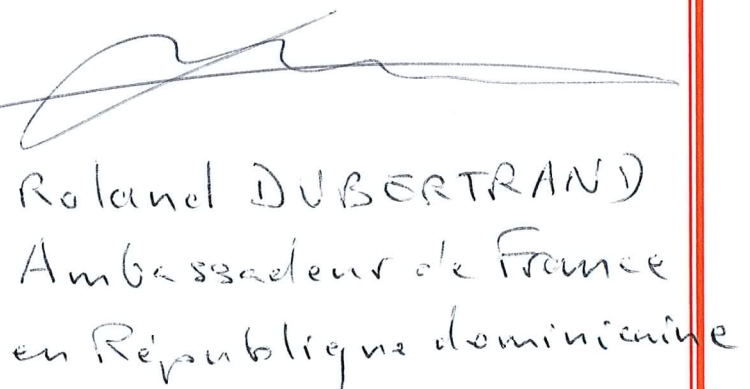 Roland DUBERTRAND
Ambassadeur de France
en République dominicaine